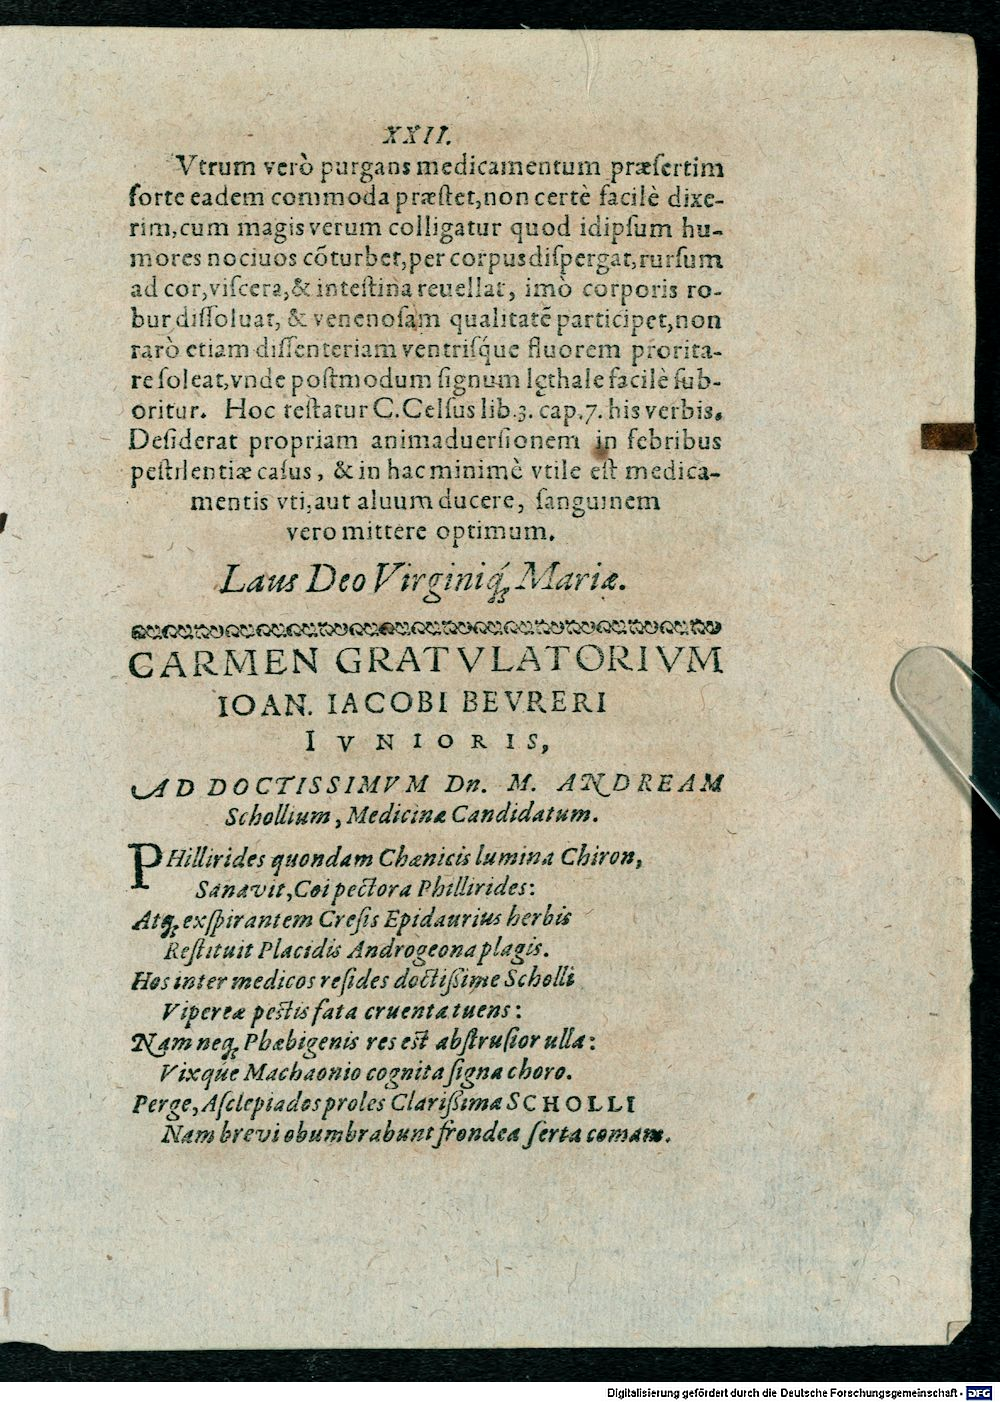 XXII.
Vtrum verò purgans medicamentum præſertim
forte eadem commoda præſtet, non certè facilè dixe-
rim, cum magis verum colligatur quod idipſum hu-
mores nociuos cõturbet, per corpus diſpergat, rurſum
ad cor, viſcera, & inteſtina reuellat, imò corporis ro-
bur diſſoluat, & venenoſam qualitatẽ participet, non
rarò etiam diſſenteriam ventriſq́ue fluorem prorita-
re ſoleat, vnde poſtmodum ſignum lęthale facilè ſub-
oritur. Hoc teſtatur C. Celſus lib. 3. cap. 7. his verbis.
Deſiderat propriam animaduerſionem in febribus
peſtilentiæ caſus, & in hac minimè vtile eſt medica-
mentis vti, aut aluum ducere, ſanguinem
vero mittere optimum.
Laus Deo Virginiq́; Mariæ.
CARMEN GRATVLATORIVM
IOAN. IACOBI BEVRERI
IVNIORIS,
AD DOCTISSIMVM Dn. M. ANDREAM
Schollium, Medicinæ Candidatum.
PHillirides quondam Chœnicis lumina Chiron,
Sanavit, Coi pectora Phillirides:
Atq; exſpirantem Creſis Epidaurius herbis
Reſtituit Placidis Androgeona plagis.
Hos inter medicos reſides doctiſſime Scholli
Vipereæ peſtis fata cruenta tuens:
Nam neq; Phœbigenis res eſt abſtruſior ulla:
Vixque Machaonio cognita ſigna choro.
Perge, Aſclepiados proles Clariſſima SCHOLLI
Nam brevi obumbrabunt frondea ſerta comam.
Digitalisierung gefördert durch die Deutsche Forschungsgemeinschaft - DFG